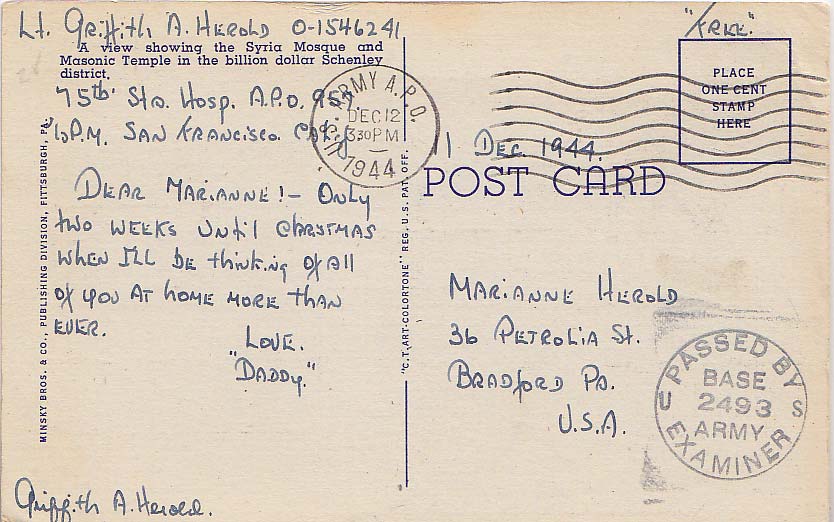 Lt. Griffith A. Herold O-1546241
A view showing the Syria Mosque and
Masonic Temple in the billion dollar Schenley
district.
75th Sta. Hosp. A.P.O. 957
P.M. San Francisco. Calif.
Dear Marianne! - Only
two weeks until Christmas
when I'll be thinking of all
of you at home more than
ever.
Love.
"Daddy."
Griffith A. Herold.
MINSKY BROS. & CO., PUBLISHING DIVISION, PITTSBURGH, PA.
"C.T. ART-COLORTONE" REG. U.S. PAT. OFF.
U.S. ARMY A.P.O.
DEC 12
330PM
1944
"Free."
PLACE
ONE CENT
STAMP
HERE
11 Dec. 1944.
POST CARD
Marianne Herold
36 Petrolia St.
Bradford Pa.
U.S.A.
PASSED BY
BASE
U 2493 S
ARMY
EXAMINER